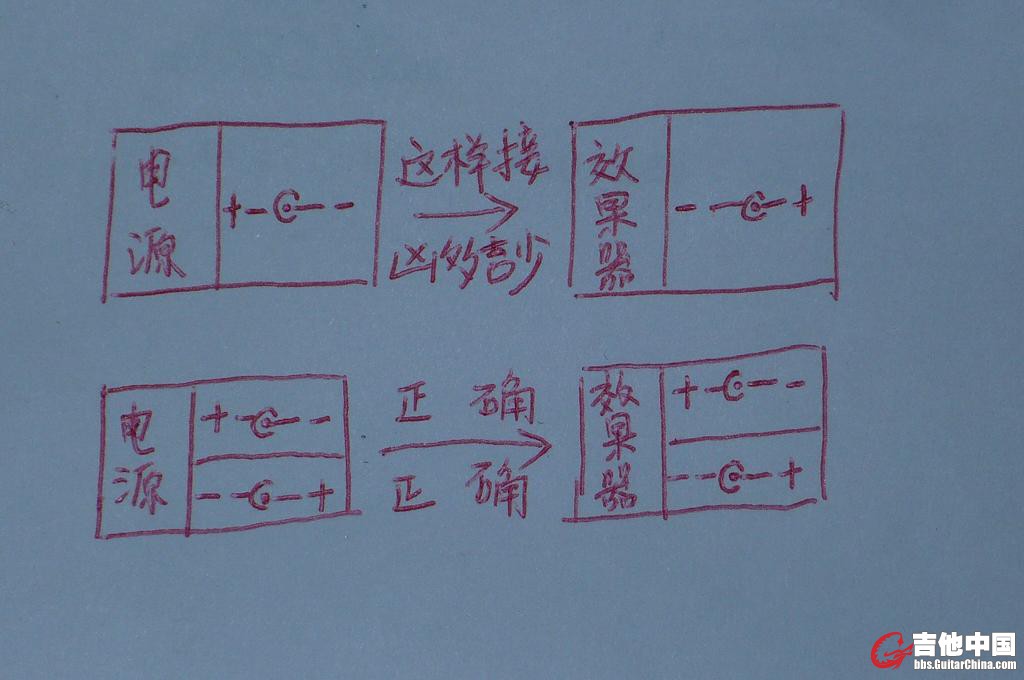 电源
+-C--
这样接
凶多吉少
效果器
- -C-+
电源
+-C--
- -C-+
正 确
正 确
效果器
+-C--
- -C-+
吉他中国
bbs.GuitarChina.com